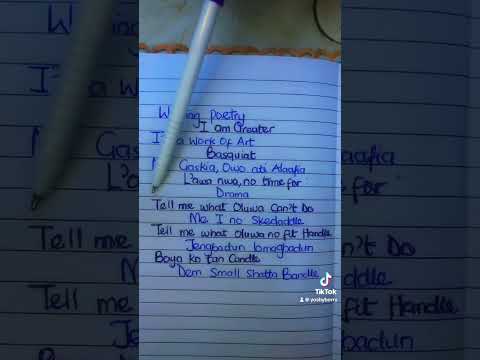 Poetry
I am Greater
a Work Of Art
Basquiat
Gaskia, Owo ati Alaafia
L'awa nwa, no time for
Drama
Tell me what Oluwa Can't Do
Me I no Skedaddle
Tell me what Oluwa no fit Handle
Jengbadun lomogbadun
Boya ko tan Candle
Dem Small Shatta Bandle
TikTok